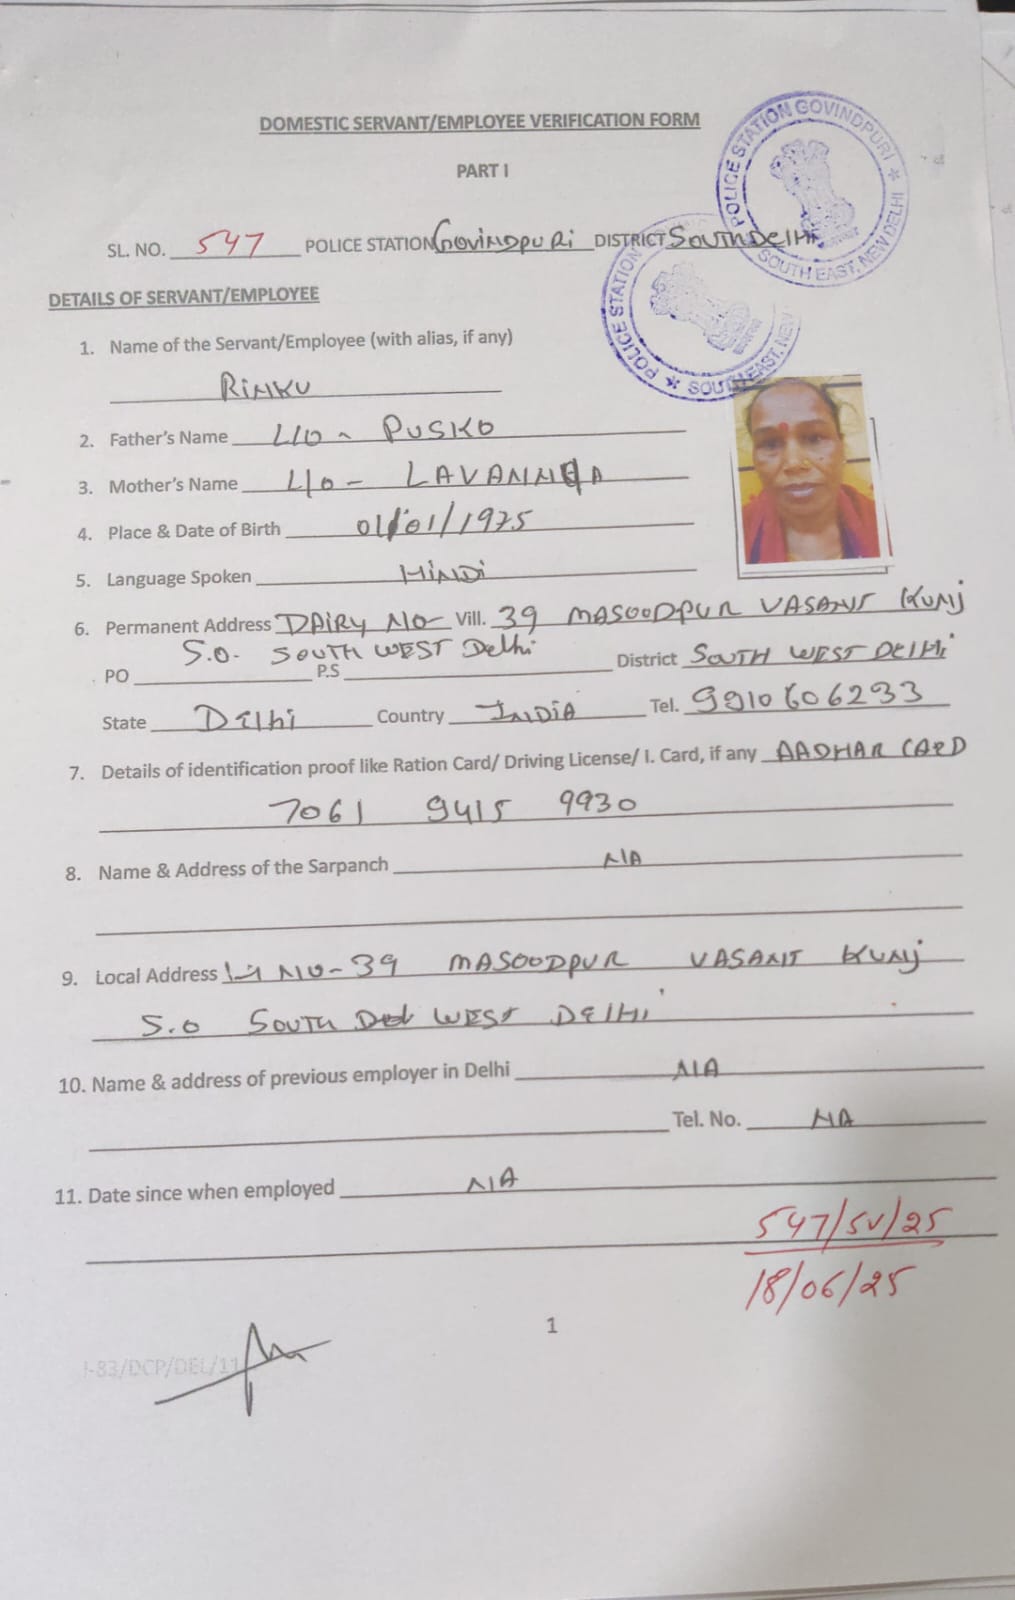 DOMESTIC SERVANT/EMPLOYEE VERIFICATION FORM
PART I
POLICE STATION GOVINDPURI * SOUTH EAST, NEW DELHI *
POLICE STATION * SOUTH EAST, NEW
SL. NO. 547 POLICE STATION GOVINDPURI DISTRICT SOUTH DELHI
DETAILS OF SERVANT/EMPLOYEE
1. Name of the Servant/Employee (with alias, if any)
RINKU
2. Father's Name L/O - PUSKO
3. Mother's Name L/O - LAVANNYA
4. Place & Date of Birth 01/01/1975
5. Language Spoken HINDI
6. Permanent Address DAIRY NO- Vill. 39 MASOODPUR VASANT KUNJ
PO S.O. SOUTH WEST Delhi P.S District SOUTH WEST DELHI
State Delhi Country INDIA Tel. 9910606233
7. Details of identification proof like Ration Card/ Driving License/ I. Card, if any AADHAR CARD
7061 9415 9930
8. Name & Address of the Sarpanch N/A
9. Local Address NO-39 MASOODPUR VASANT KUNJ
S.O SOUTH WEST DELHI
10. Name & address of previous employer in Delhi N/A
Tel. No. NA
11. Date since when employed N/A
547/SV/25
18/06/25
1
I-83/DCP/DEL/11